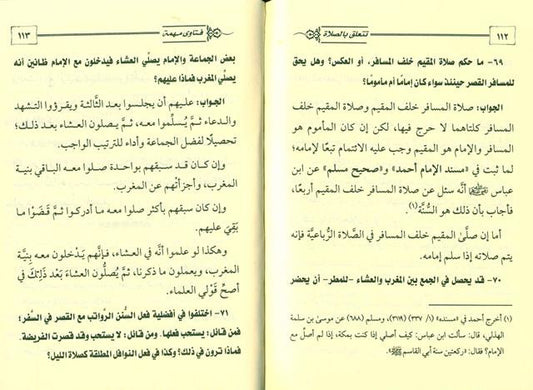 ١١٢
تتعلق بالصلاة
٦٩- ما حكم صلاة المقيم خلف المسافر، أو العكس؟ وهل يحق
للمسافر القصر حينئذ سواء كان إمامًا أم مأمومًا؟
الجواب: صلاة المسافر خلف المقيم وصلاة المقيم خلف
المسافر كلتاهما لا حرج فيها، لكن إن كان المأموم هو
المسافر والإمام هو المقيم وجب عليه الائتمام تبعًا لإمامه؛
لما ثبت في «مسند الإمام أحمد» و«صحيح مسلم» عن ابن
عباس أنَّه سئل عن صلاة المسافر خلف المقيم أربعًا،
فأجاب بأن ذلك هو السُّنَّة(١).
أما إن صلَّى المقيم خلف المسافر في الصَّلاة الرُّباعيَّة فإنه
يتم صلاته إذا سلم إمامه.
٧٠- قد يحصل في الجمع بين المغرب والعشاء -للمطر- أن يحضر
(١) أخرج أحمد في «مسنده» (١/ ٣٣٧) (٣١١٩)، ومسلم (٦٨٨) عن موسى بن سلمة
الهذلي، قال: سألت ابن عباس: كيف أصلي إذا كنت بمكة، إذا لم أصل مع
الإمام؟ فقال: «ركعتين سنة أبي القاسم ﷺ».
فتاوى مهمة
١١٣
بعض الجماعة والإمام يصلّي العشاء فيدخلون مع الإمام ظانين أنه
يصلّي المغرب فماذا عليهم؟
الجواب: عليهم أن يجلسوا بعد الثَّالثة ويقرؤوا التشهد
والدعاء ثم يُسلِّموا معه، ثمَّ يصلون العشاء بعد ذلك؛
تحصيلًا لفضل الجماعة وأداء للترتيب الواجب.
وإن كان قد سبقهم بواحدة صلوا معه الباقي بنية
المغرب، وأجزأتهم عن المغرب.
وإن كان سبقهم بأكثر صلوا معه ما أدركوا ثمَّ قَضَوْا ما
بَقِيَ عليهم.
وهكذا لو علموا أنَّه في العشاء، فإنَّهم يَدْخلون معه بِنِيَّة
المغرب، ويعملون ما ذكرنا، ثمَّ يُصلُّون العشاءَ بَعْد ذَلِكَ في
أصحِّ قَوْلي العلماء.
٧١- اختلفوا في أفضلية فعل السُّنن الرَّواتب مع القصر في السَّفر؛
فمن قائل: يستحب فعلها. ومن قائل: لا يستحب وقد قصرت الفريضة.
فماذا ترون في ذلك؟ وكذا في فعل النوافل المطلقة كصلاة الليل؟